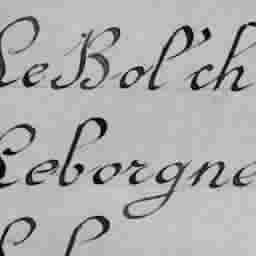 Le Bol'ch
Leborgne